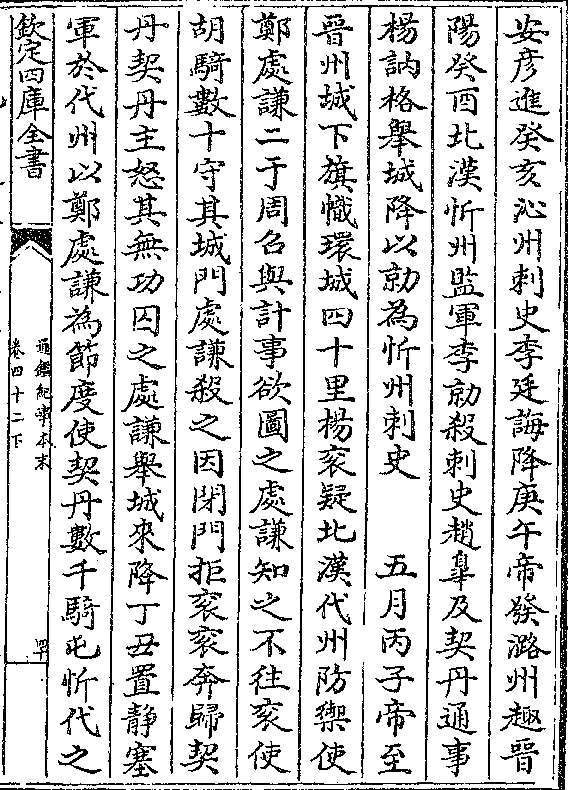 安彦進癸亥沁州刺史李廷誨降庚午帝發潞州趣晉
陽癸酉北漢忻州監軍李勍殺刺史趙臯及契丹通事
楊訥格舉城降以勍為忻州刺史　五月丙子帝至
晉州城下旗幟環城四十里楊衮疑北漢代州防禦使
鄭處謙二于周召與計事欲圖之處謙知之不往衮使
胡騎數十守其城門處謙殺之因閉門拒衮衮奔歸契
丹契丹主怒其無功囚之處謙舉城來降丁丑置静塞
軍於代州以鄭處謙為節度使契丹數千騎屯忻代之
欽定四庫全書
通鑑紀事本末
卷四十二下